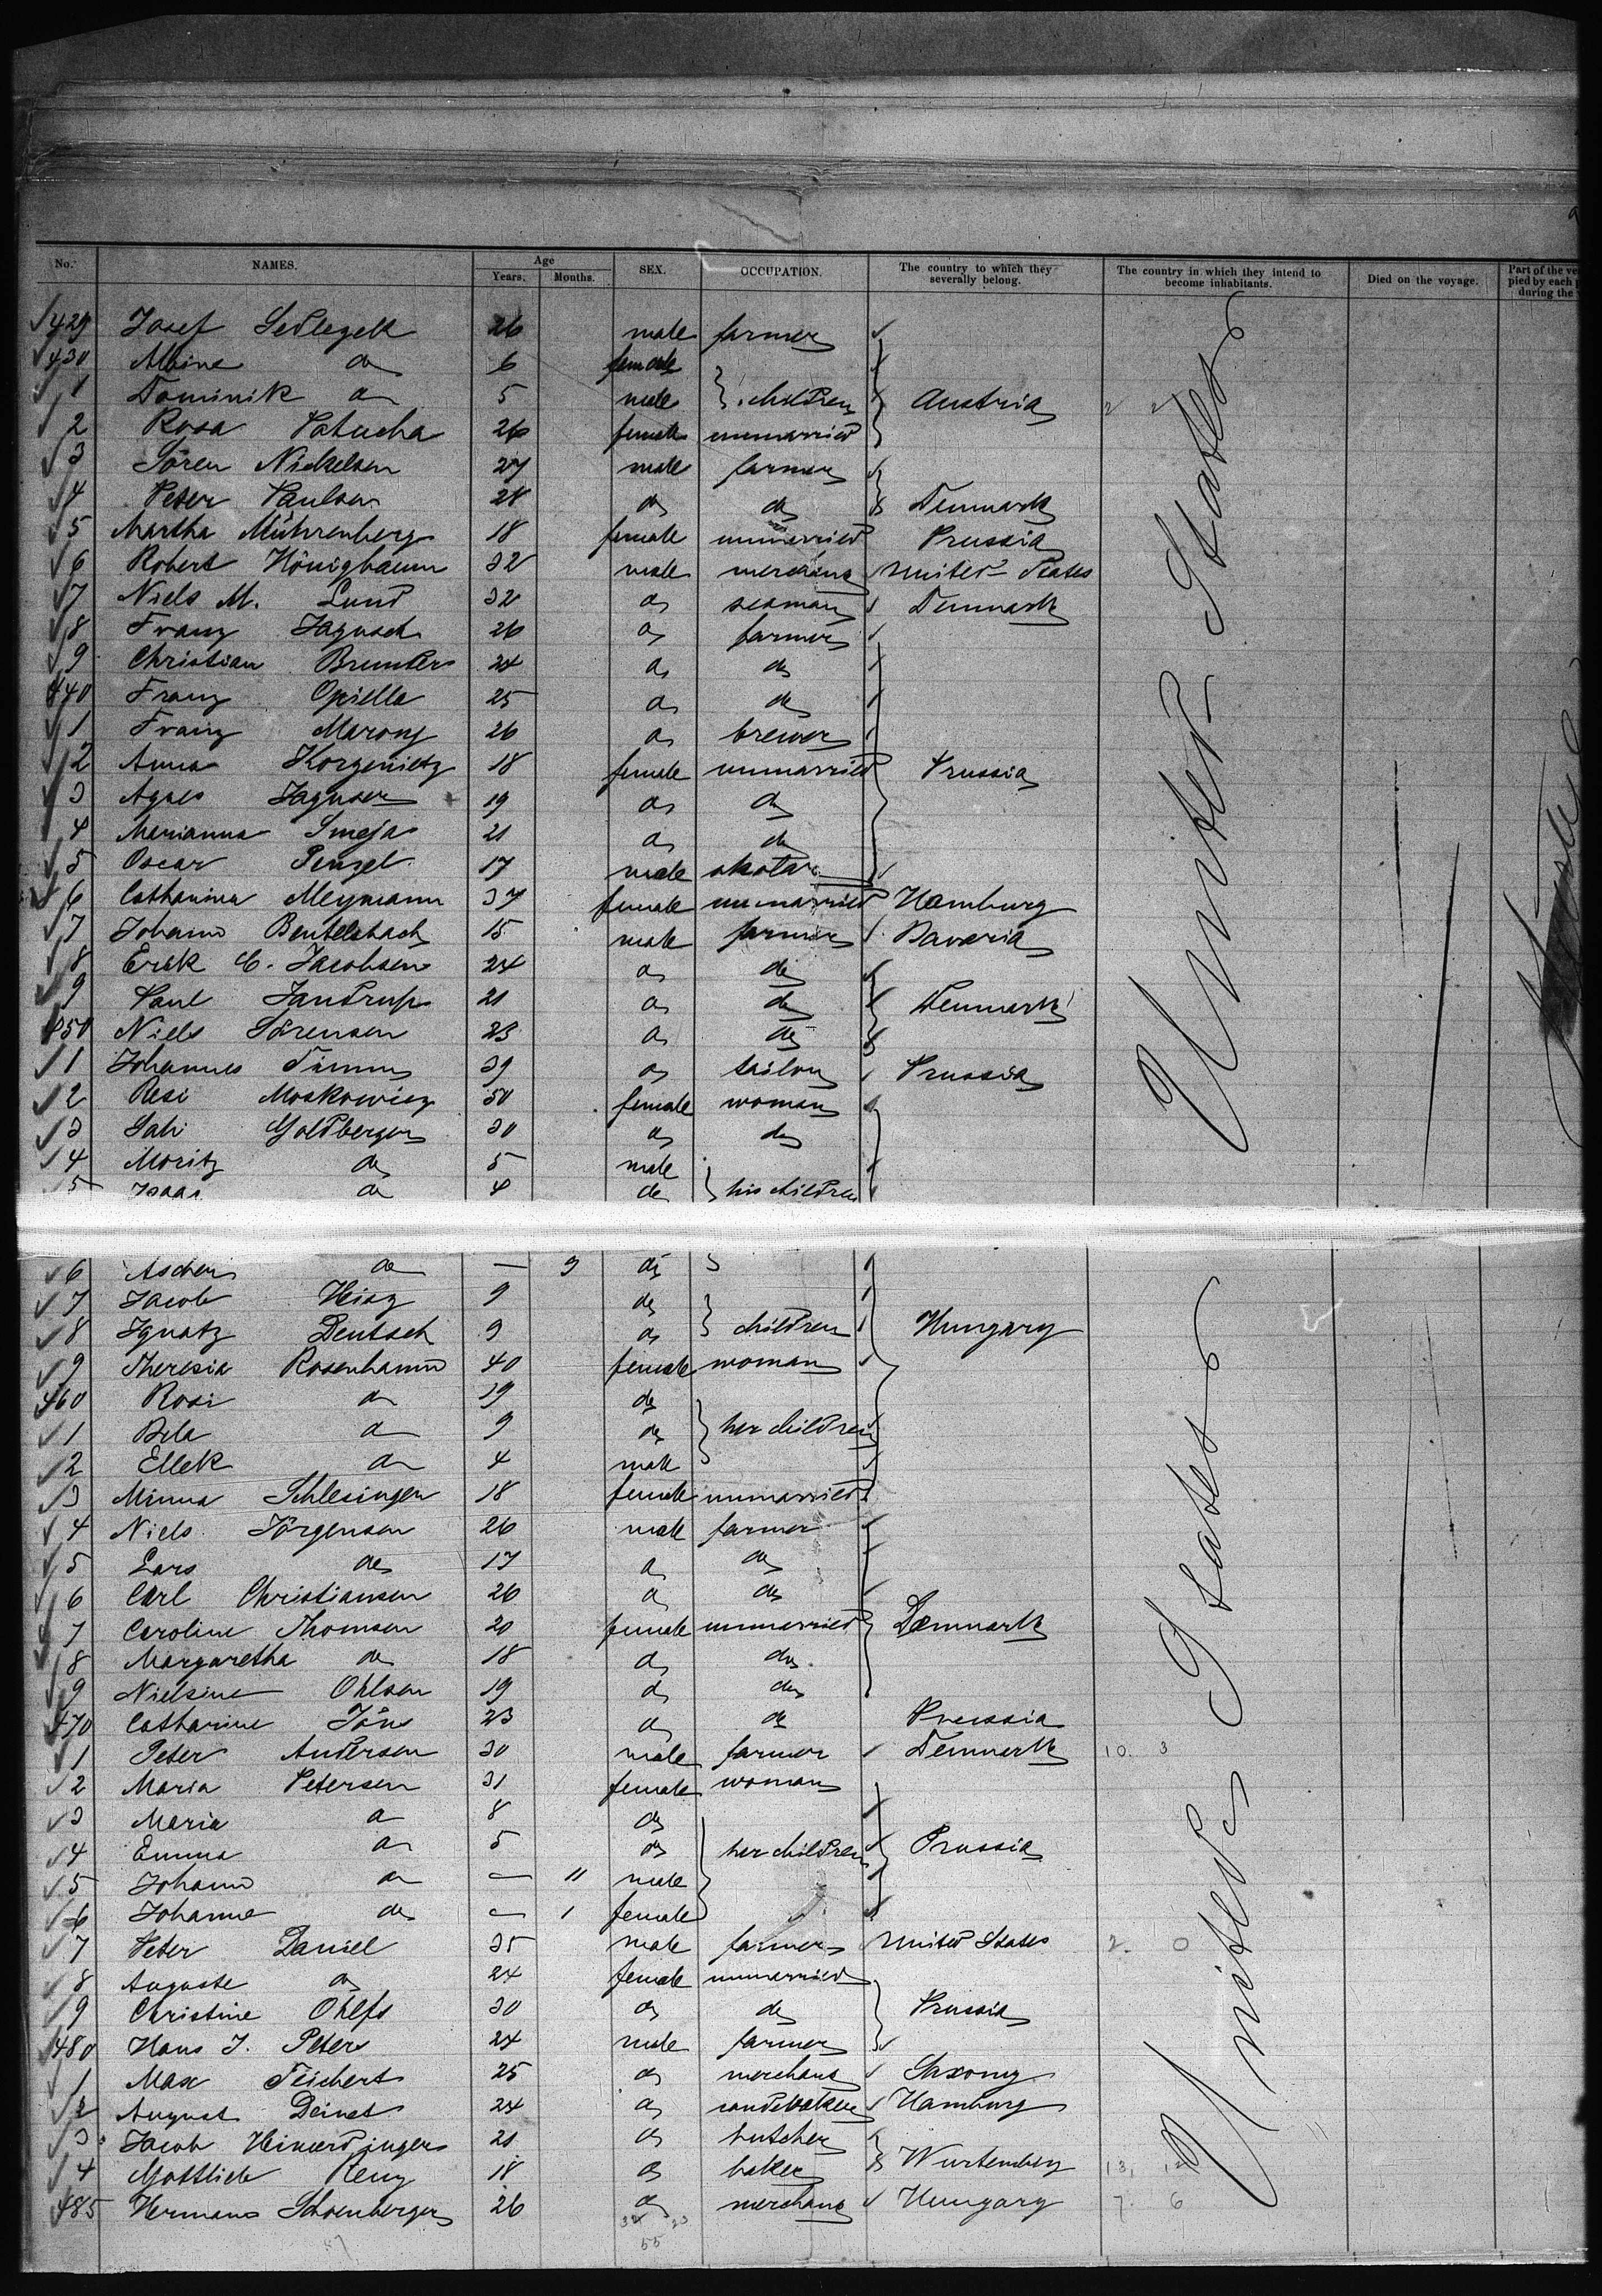 No. NAMES. Age Years. Months. SEX. OCCUPATION. The country to which they severally belong. The country in which they intend to become inhabitants. Died on the voyage. Part of the ve pied by each p during the
429 Josef Sedlegek 26 male farmer
430 Albine do 6 female
1 Dominik do 5 male children Austria
2 Rosa 26 female unmarried
3 Sören Nickelsen 27 male farmer
4 Peter Paulsen 28 do do Denmark
5 Martha Mührenberg 18 female unmarried Prussia
6 Robert Königbaum 32 male merchant United States
7 Niels M. Lund 32 do seaman Denmark
8 Franz Jagusch 26 do farmer
9 Christian 24 do do
440 Franz Opiella 25 do do
1 Franz Marong 26 do brewer
2 Anna Korgenietz 18 female unmarried Prussia
3 Agnes 19 do do
4 Marianna Smeja 21 do do
5 Oscar Penzel 17 male
6 Catharina Meymann 37 female unmarried Hamburg
7 Johann Beutelsbach 15 male farmer Bavaria
8 Erik C. Jacobsen 24 do do
9 Paul Jandrup 21 do do Denmark
450 Niels Sörensen 23 do do
1 Johannes Timm 39 do tailor Prussia
2 Resi Moskowicz 50 female woman
3 Sali Goldberger 30 do do
4 Moritz do 5 male
5 Isaac do 4 do his children
6 Ascher do — 9 do
7 Jacob 9 do
8 Ignatz Deutsch 9 do children Hungary
9 Theresia Rosenbaum 40 female woman
460 Rosi do 19 do
1 Bela do 9 do her children
2 Ellek do 4 male
3 Minna Schlesinger 18 female unmarried
4 Niels Jörgensen 26 male farmer
5 Lars do 17 do do
6 Carl Christiansen 26 do do
7 Caroline Thomsen 20 female unmarried Denmark
8 Margaretha do 18 do do
9 Nielsine Ohlsen 19 do do
470 Catharine Jöns 23 do do Prussia
1 Peter Andersen 30 male farmer Denmark 10. 3
2 Maria Petersen 31 female woman
3 Maria do 8 do
4 Emma do 5 do her children Prussia
5 Johann do — 11 male
6 Johanne do — 1 female
7 Peter Daniel 35 male farmer United States 2. 0
8 Auguste do 24 female unmarried
9 Christine Ohlfs 30 do do Prussia
480 Hans J. Peters 24 male farmer
1 Max Teichert 25 do merchant Saxony
2 August Deinet 24 do Hamburg
3 Jacob Heimerdinger 21 do butcher
4 Gottlieb Renz 18 do baker Wurtemberg 13. 12
485 Hermann Schoenberger 26 do merchant Hungary 7. 6
55
United States
United States